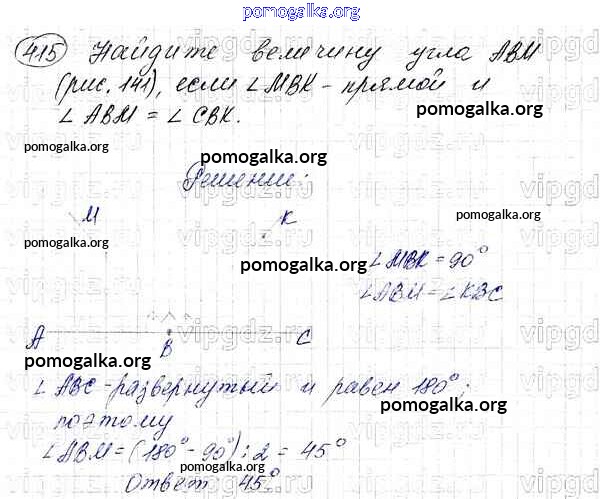 pomogalka.org
415 Найдите величину угла АВМ
(рис. 141), если ∠МВК - прямой и
pomogalka.org
∠АВМ = ∠СВК.
pomogalka.org
Решение:
vipgdz.ru
М К
pomogalka.org
pomogalka.org
pomogalka.org
∠МВК = 90°
∠АВМ = ∠КВС
А В С
pomogalka.org
∠АВС - развернутый и равен 180°;
pomogalka.org
поэтому
∠АВМ = (180° - 90°) : 2 = 45°
pomogalka.org
Ответ 45°
pomogalka.org